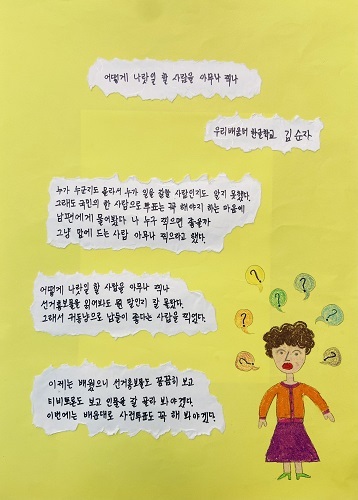 어떻게 나랏일 할 사람을 아무나 찍나
우리배움터 한글학교 김순자
누가 누군지도 몰라서 누가 일을 잘할 사람인지도 알지 못했다.
그래도 국민의 한 사람으로 투표는 꼭 해야지 하는 마음에
남편에게 물어봤다. 나 누구 찍으면 좋을까
그냥 맘에 드는 사람 아무나 찍으라고 했다.
어떻게 나랏일 할 사람을 아무나 찍나
선거홍보물을 읽어봐도 뭔 말인지 잘 몰랐다.
그래서 귀동냥으로 남들이 좋다는 사람을 찍었다.
이제는 배웠으니 선거홍보물도 꼼꼼히 보고
티비토론도 보고 인물을 잘 골라 봐야겠다.
이번에는 배운대로 사전투표도 꼭 해 봐야겠다.
?
?
?
?
?
?